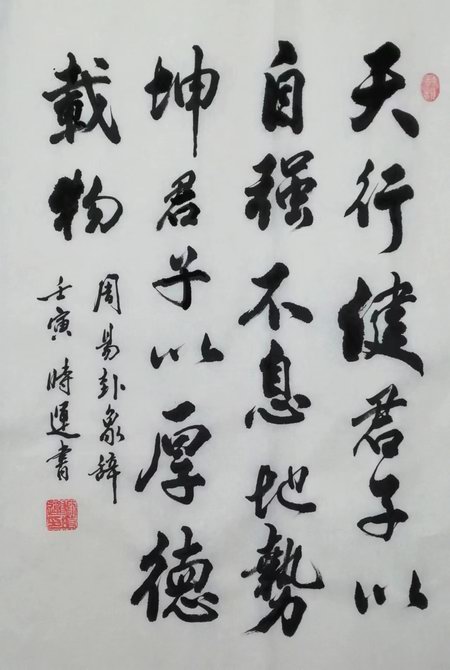 天行健君子以
自强不息地勢
坤君子以厚德
載物
周易卦象辭
壬寅時運書